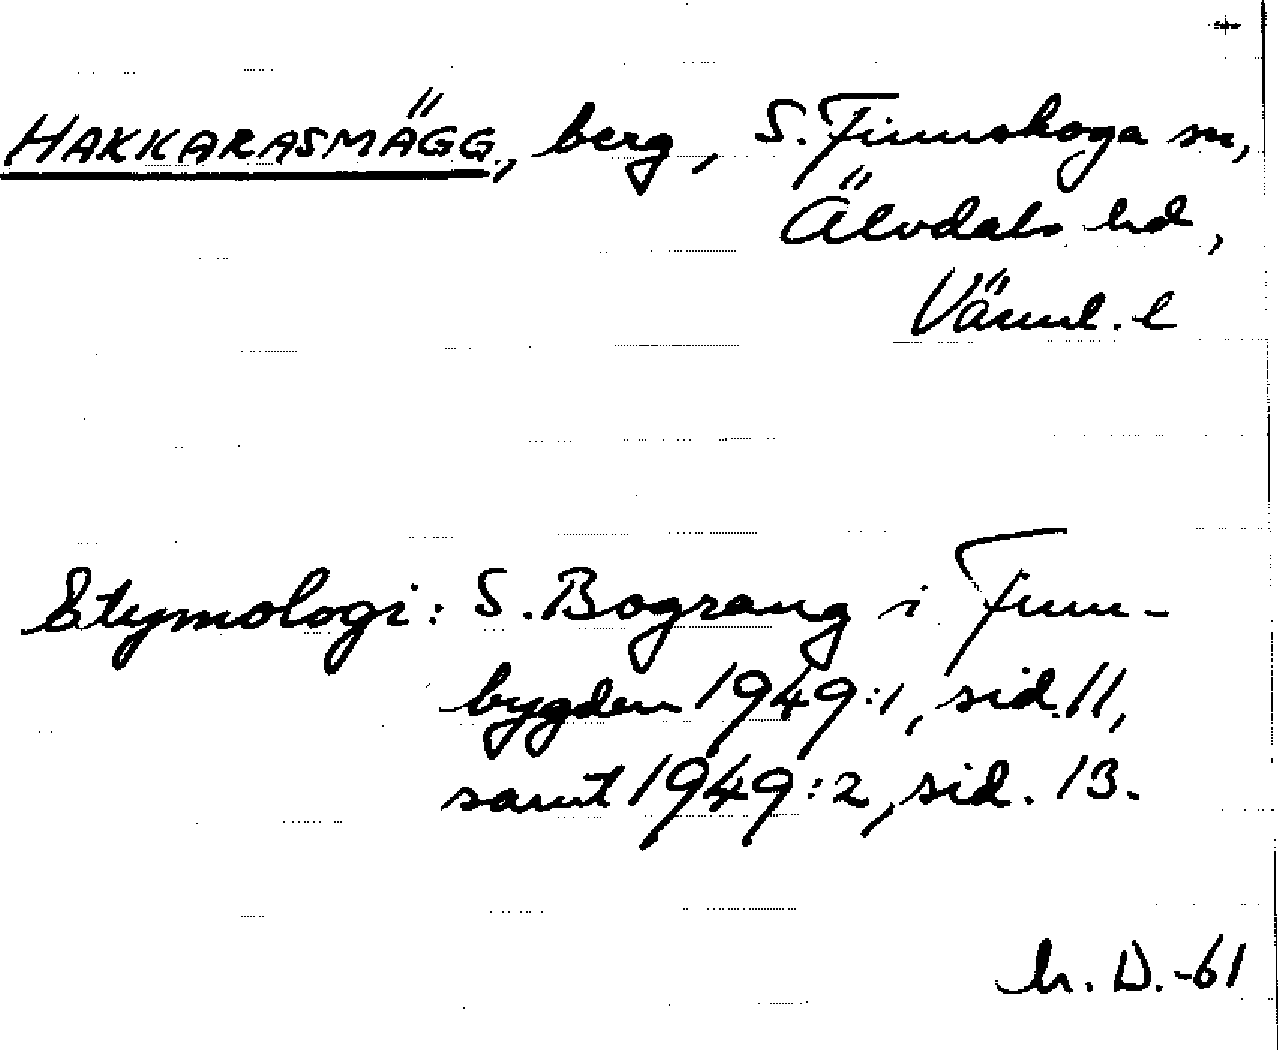 HAKKARASMÄGG, berg, S. Finnskoga sn,
Älvdals hd,
Värml. l
Etymologi: S. Bograng i Finn-
bygden 1949:1, sid. 11,
samt 1949:2, sid. 13.
h. D. -61